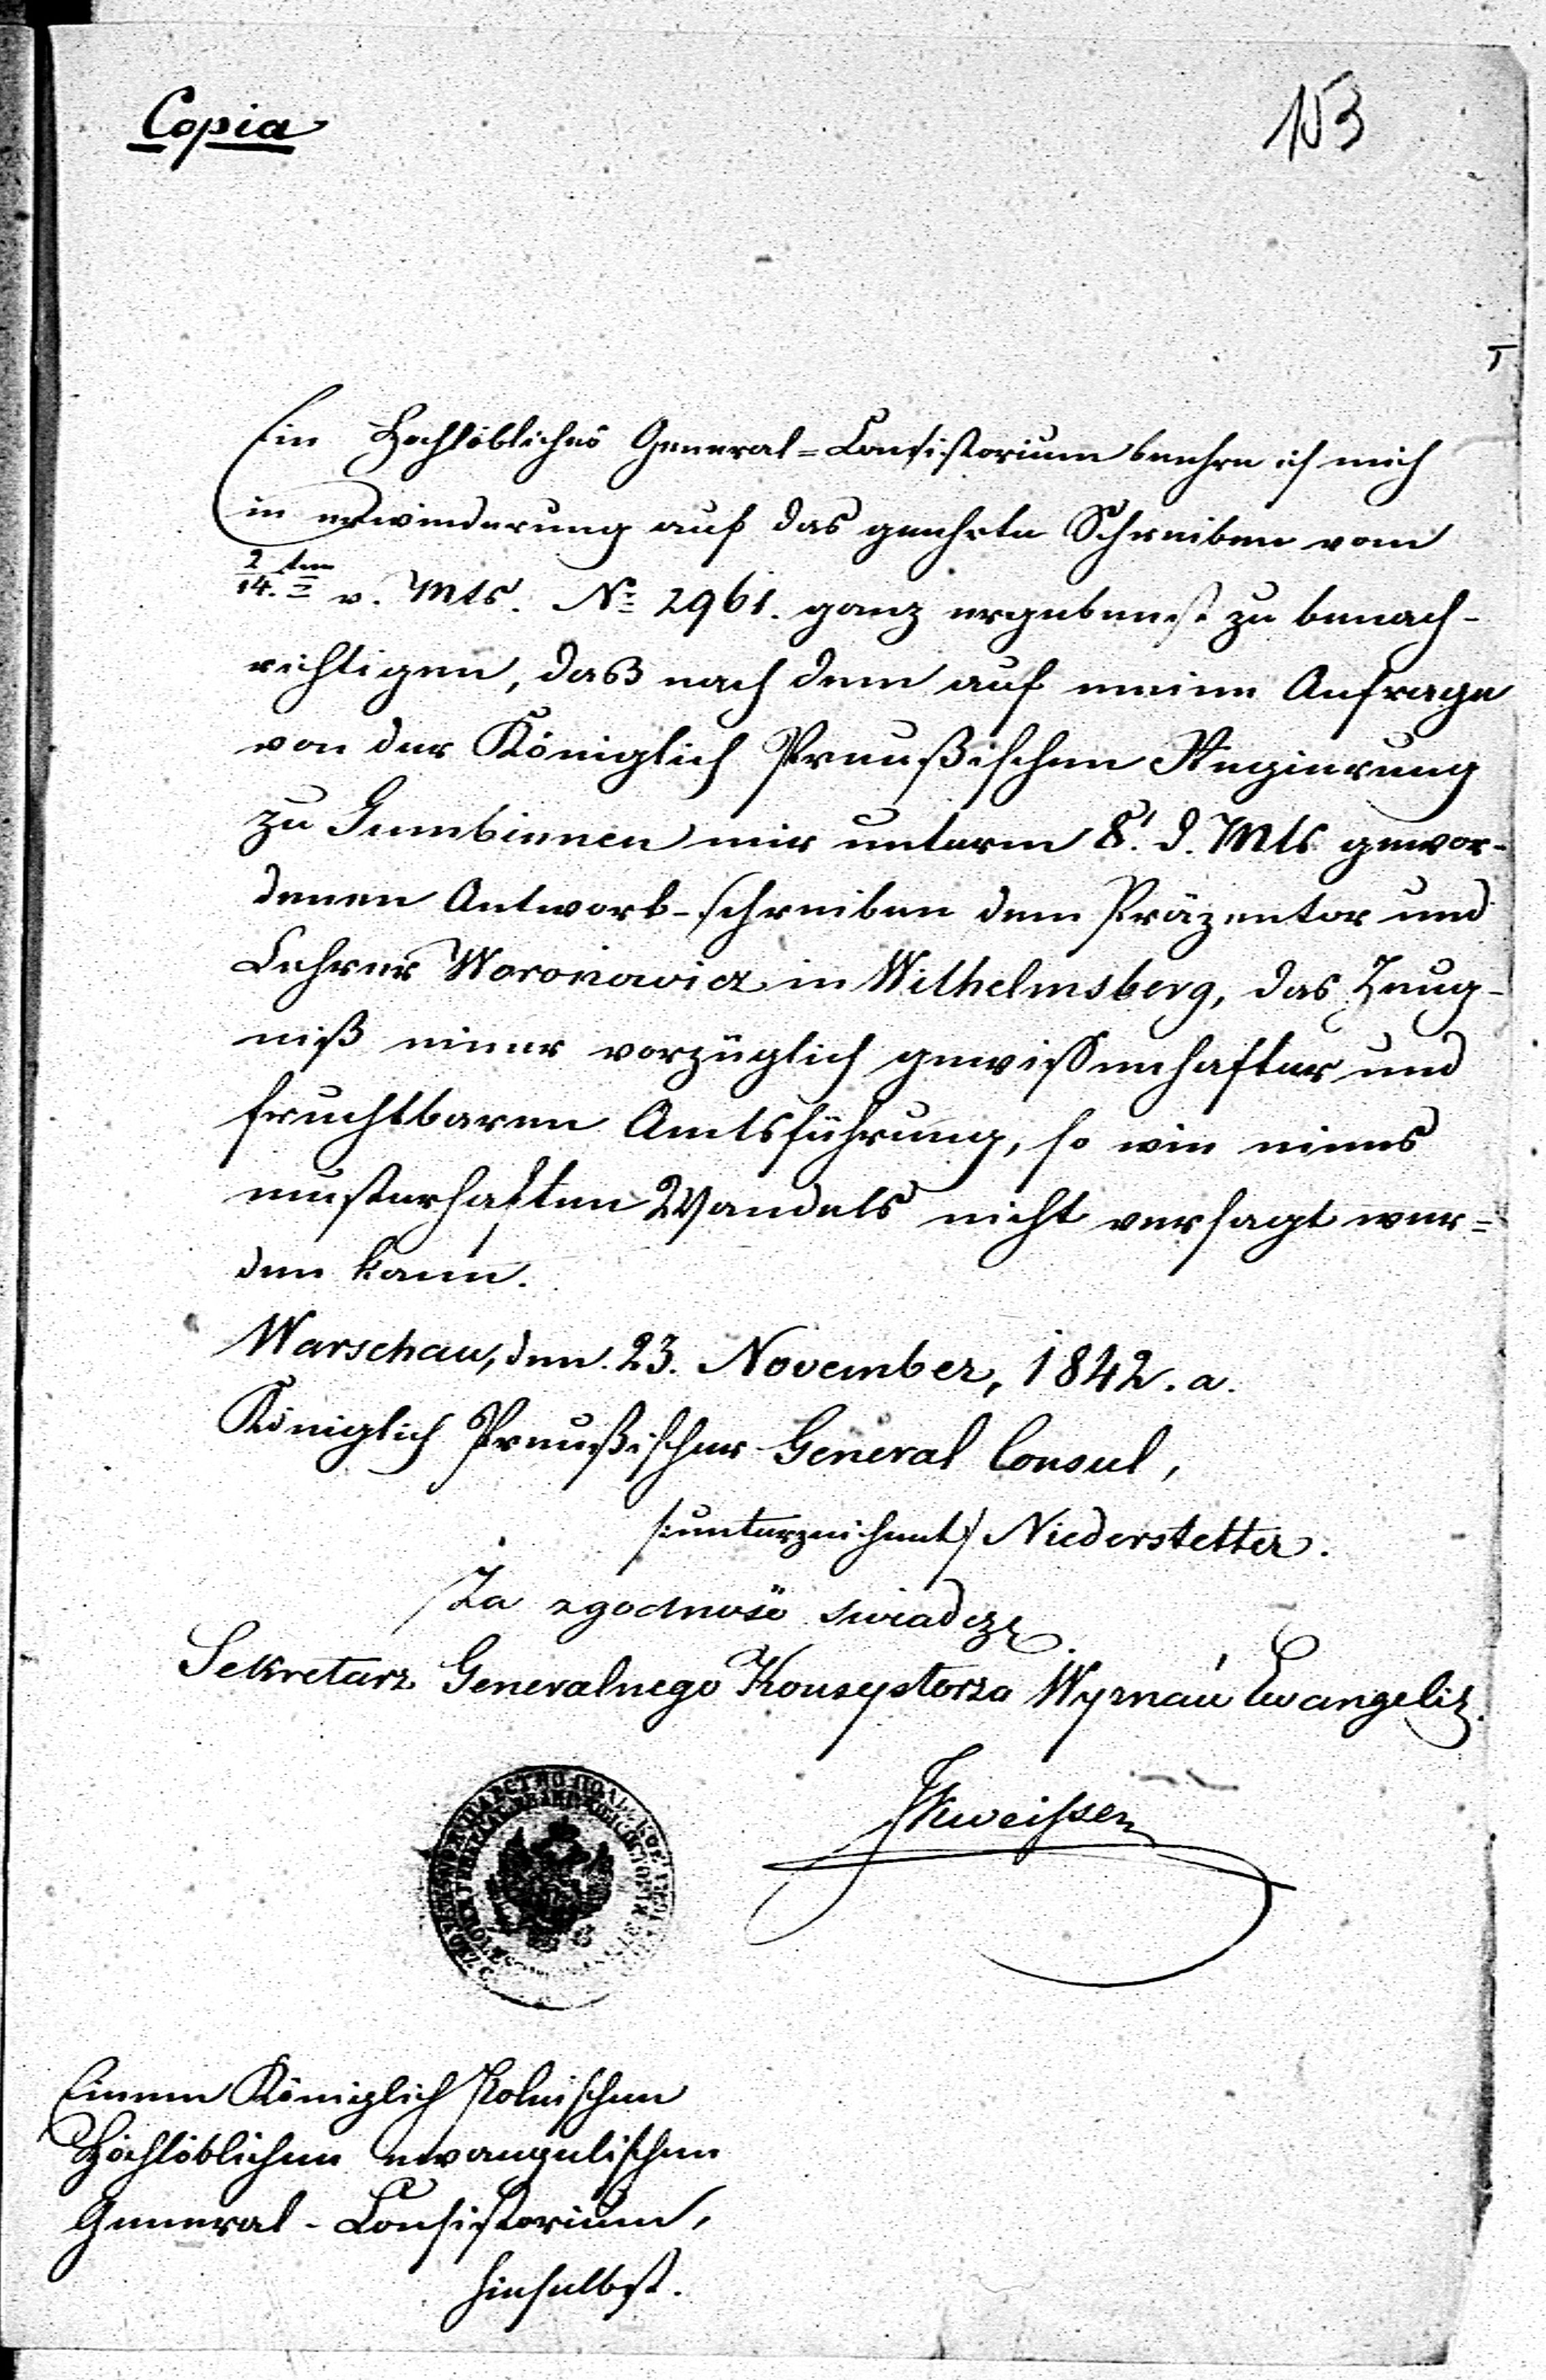 Copia
153
Ein Hochlöbliches General=Consistorium beehre ich mich
in erwiederung auf das geehrte Schreiben vom
2/14. ten v. Mts. No 2961. ganz ergebenst zu benach-
richtigen, daß nach dem auf meine Anfrage
von der Königlich Preußischen Regierung
zu Gumbinnen mir unterm 8. d. Mts gewor-
denen Antwort-schreiben dem Präzentor und
Lehrer Woronowicz in Wilhelmsberg, das Zeug-
niß einer vorzüglich gewissenhafter und
fruchtbaren Amtsführung, so wie eines
musterhaften Wandels nicht versagt wer=
den kann.
Warschau, den. 23. November, 1842. a.
Königlich Preußischer General Consul,
/:unterzeichnet/ Niederstetter.
Za zgodność świadczę
Sekretarz Generalnego Konsystorza Wyznań Ewangelic.
Einem Königlich Polnischen
Hochlöblichen evangelischen
General-Consistorium,
hieselbst.